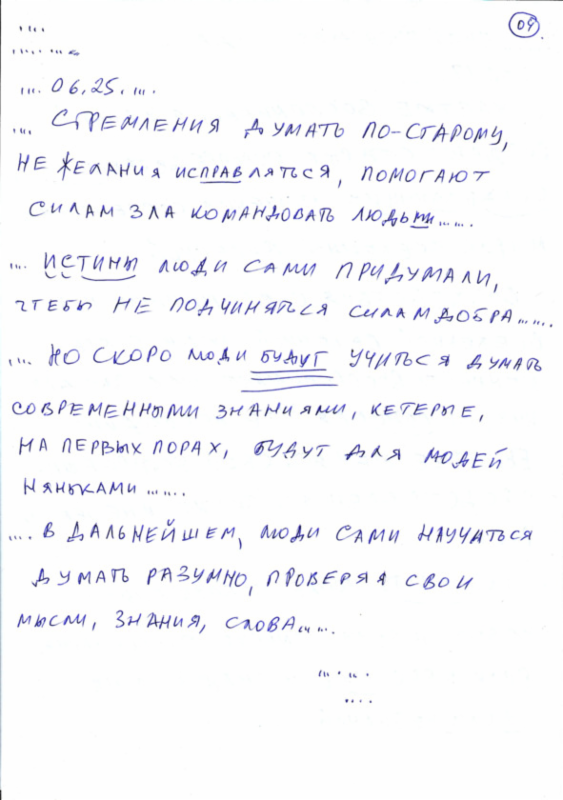 09.
....
.... ... ..
.... 06.25. ....
... СТРЕМЛЕНИЯ ДУМАТЬ ПО-СТАРОМУ,
НЕ ЖЕЛАНИЯ ИСПРАВЛЯТЬСЯ, ПОМОГАЮТ
СИЛАМ ЗЛА КОМАНДОВАТЬ ЛЮДЬМИ......
... ИСТИНЫ ЛЮДИ САМИ ПРИДУМАЛИ,
ЧТЕБЫ НЕ ПОДЧИНЯТЬСЯ СИЛАМ ДОБРА.......
.... НО СКОРО ЛЮДИ БУДУТ УЧИТЬСЯ ДУМАТЬ
СОВРЕМЕННЫМИ ЗНАНИЯМИ, КЕТЕРЫЕ,
НА ПЕРВЫХ ПОРАХ, БУДУТ ДЛЯ ЛЮДЕЙ
НЯНЬКАМИ.......
.... В ДАЛЬНЕЙШЕМ, ЛЮДИ САМИ НАУЧАТЬСЯ
ДУМАТЬ РАЗУМНО, ПРОВЕРЯЯ СВОИ
МЫСЛИ, ЗНАНИЯ, СЛОВА......
... . .. .
....